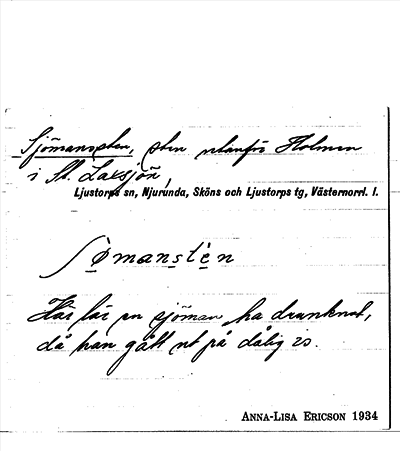 Sjömanssten, sten utanför Holmen
i St. Laxsjön,
Ljustorps sn, Njurunda, Sköns och Ljustorps tg, Västernorrl. l.
Sømanstèn
Här lär en sjöman ha drunknat,
då han gått ut på dålig is.
ANNA-LISA ERICSON 1934